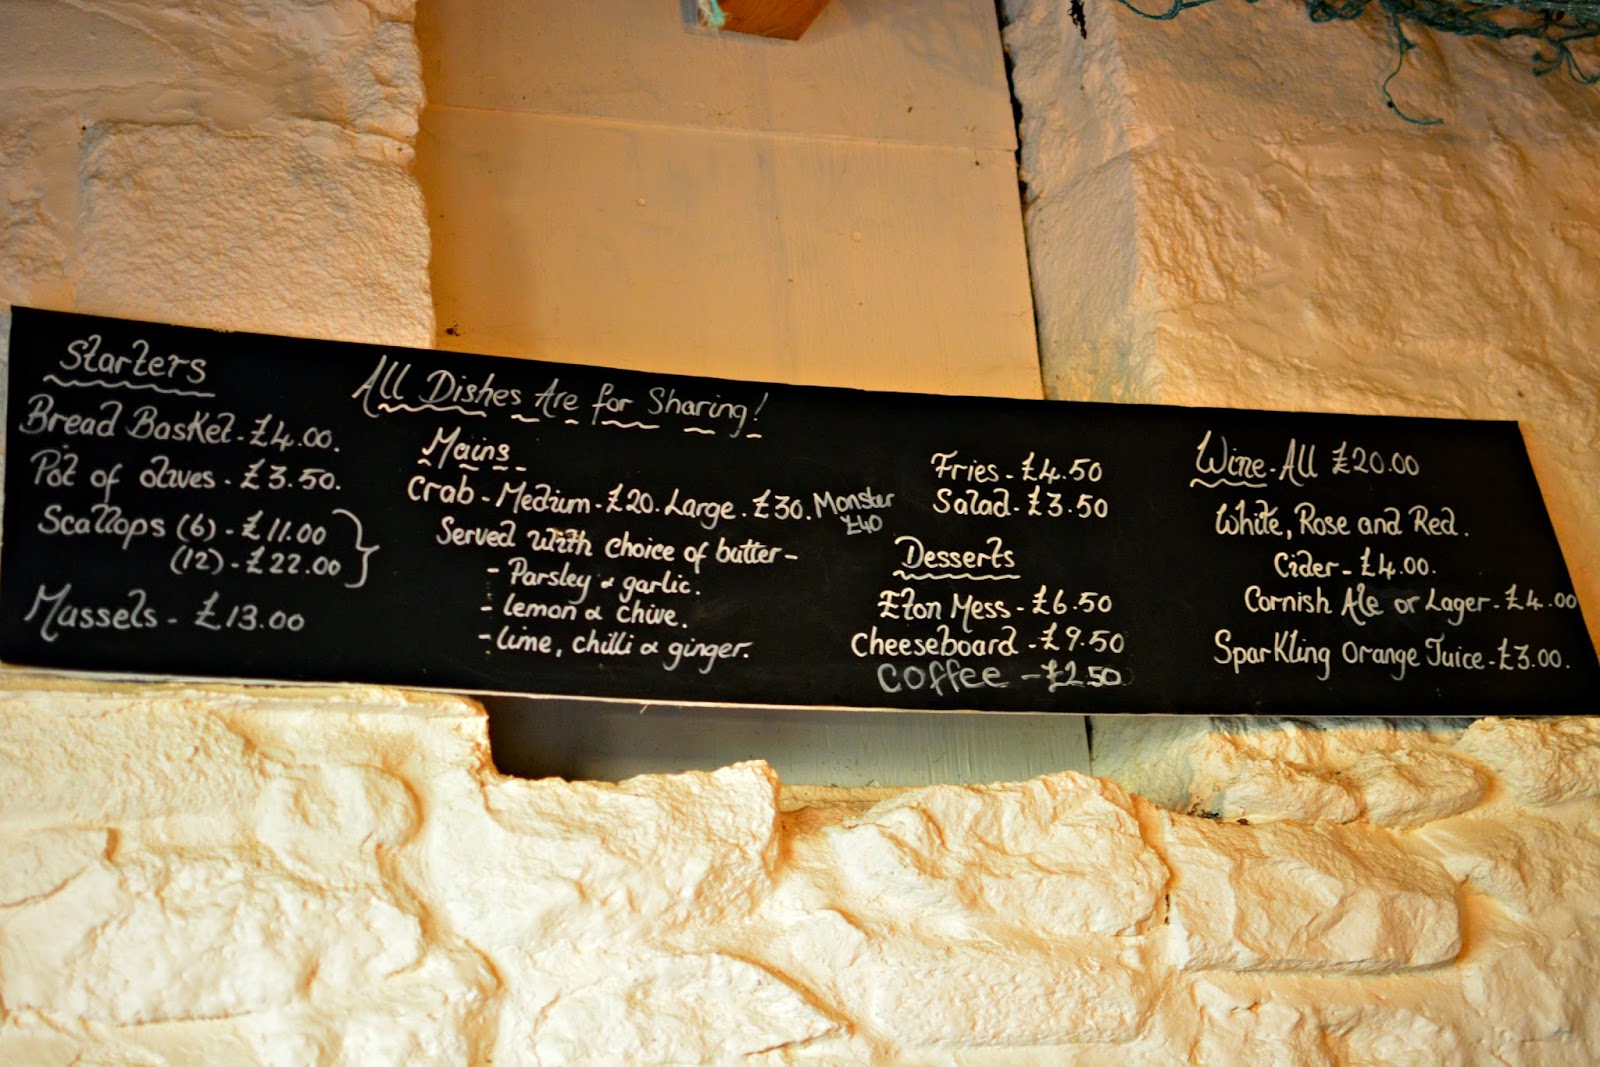 Starters
Bread Basket - £4.00.
Pot of olives - £3.50.
Scallops (6) - £11.00
(12) - £22.00
Mussels - £13.00
All Dishes Are for Sharing!
Mains
Crab - Medium - £20. Large - £30. Monster £40
Served with choice of butter -
- Parsley & garlic.
- lemon & chive.
- lime, chilli & ginger.
Fries - £4.50
Salad - £3.50
Desserts
Eton Mess - £6.50
Cheeseboard - £9.50
Coffee - £2.50
Wine - All £20.00
White, Rose and Red.
Cider - £4.00.
Cornish Ale or Lager - £4.00
Sparkling Orange Juice - £3.00.